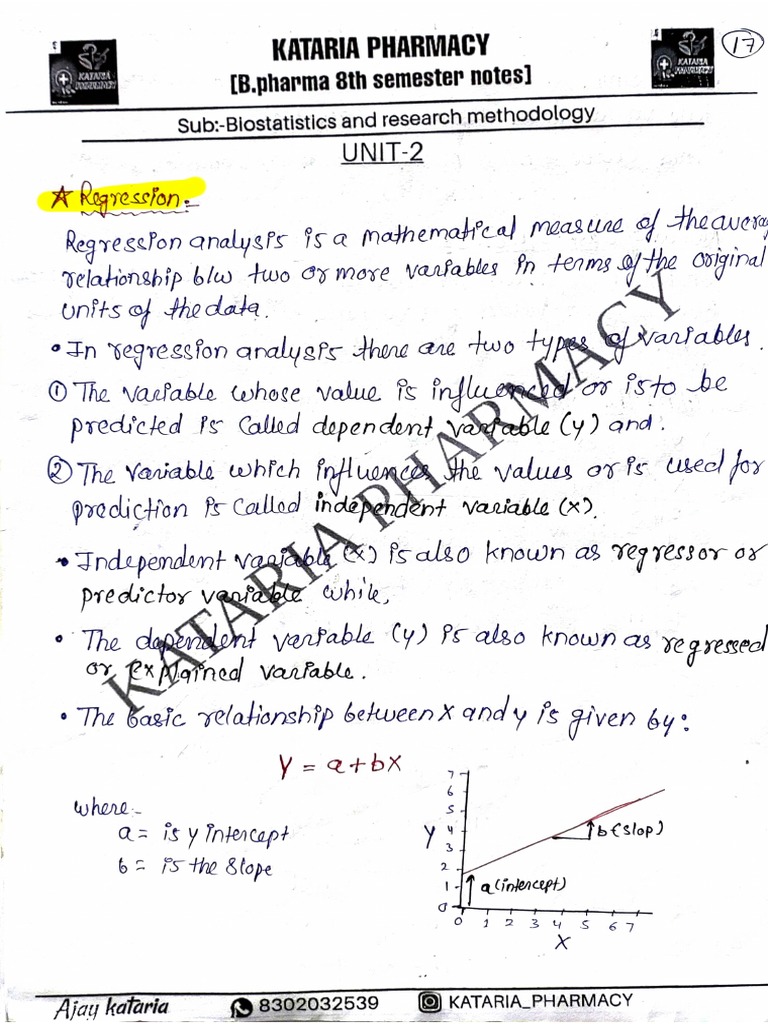 KATARIA PHARMACY
[B.pharma 8th semester notes]
17
KATARIA PHARMACY
KATARIA PHARMACY
Sub:-Biostatistics and research methodology
UNIT-2
☆ Regression:-
Regression analysis is a mathematical measure of the averag
relationship b/w two or more variables in terms of the original
units of the data.
• In regression analysis there are two types of variables.
① The variable whose value is influenced or is to be
predicted is called dependent variable (y) and.
② The variable which influences the values or is used for
prediction is called independent variable (x).
• Independent variable (x) is also known as regressor or
predictor variable while,
• The dependent variable (y) is also known as regressed
or explained variable.
• The basic relationship between X and y is given by:
Y = a+bx
where:-
a = is y intercept
b = is the slope
7
6
5
4
3
2
1
0
Y
b (slop)
a (intercept)
0 1 2 3 4 5 6 7
X
KATARIA PHARMACY
Ajay kataria
8302032539
KATARIA_PHARMACY